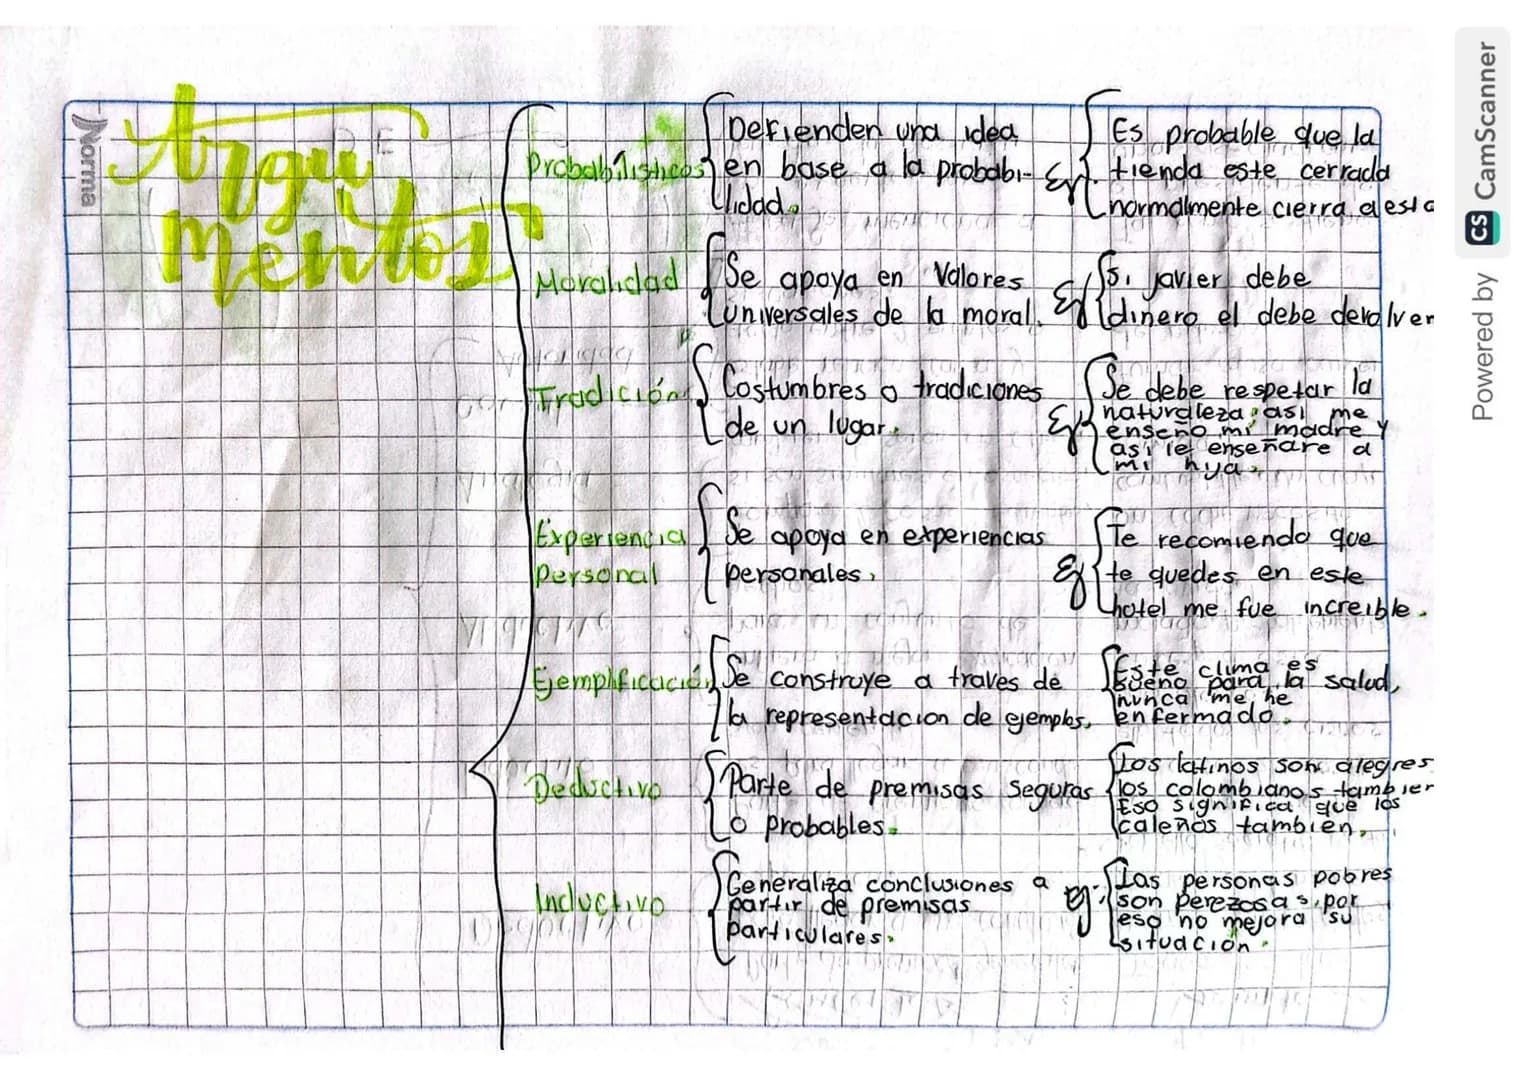 Argu
mentos
Norma
Probabilísticos
Defienden una idea
en base a la probabi-
lidad.
Ej.
Es probable que la
tienda este cerrada
normalmente cierra a esta
Moralidad
Se apoya en Valores
universales de la moral.
Ej
Si javier debe
dinero el debe devolver
Tradición
Costumbres o tradiciones
de un lugar.
Ej
Se debe respetar la
naturaleza, asi me
enseño mi madre y
así le enseñare a
mi hija.
Experiencia
personal
Se apoya en experiencias
personales.
Ej
Te recomiendo que
te quedes en este
hotel me fue increible.
Ejemplificación
Se construye a traves de
la representacion de ejemplos.
Este clima es
bueno para la salud,
nunca me he
enfermado.
Deductivo
Parte de premisas seguras
o probables.
Los latinos son alegres
los colombianos tambien
Eso significa que los
caleños también.
Inductivo
Generaliza conclusiones a
partir de premisas
particulares.
ej:
Las personas pobres
son perezosas, por
eso no mejora su
situación.
Powered by CS CamScanner